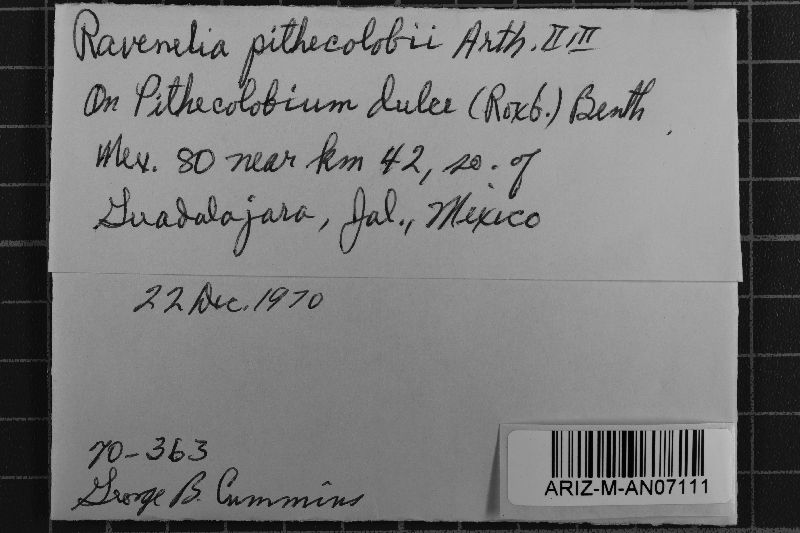 Ravenelia pithecolobii Arth. II III
On Pithecolobium dulce (Roxb.) Benth.
Mex. 80 near km 42, so. of
Guadalajara, Jal., Mexico
22 Dec. 1970
70-363
George B. Cummins
ARIZ-M-AN07111